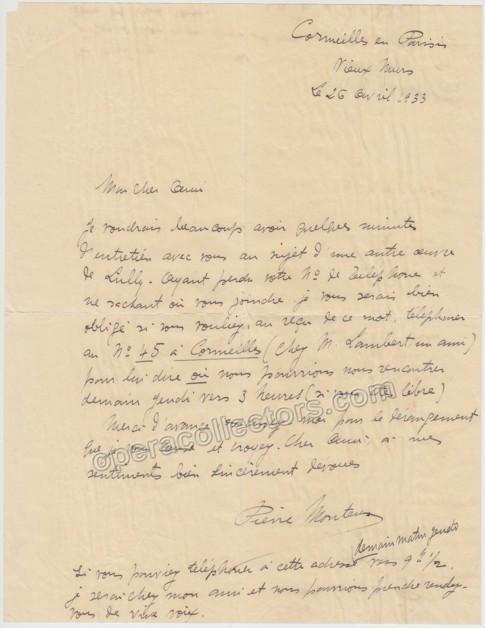 Cormeilles en Parisis
Vieux Murs
Le 26 Avril 1933
Mon cher Ami
Je voudrais beaucoup avoir quelques minutes
d'entretien avec vous au sujet d'une autre œuvre
de Lully. Ayant perdu votre No de Téléphone et
ne sachant où vous joindre, je vous serais bien
obligé si vous vouliez, au reçu de ce mot, téléphoner
au No 45 à Cormeilles (chez M. Lambert un ami)
pour lui dire où nous pourrions nous rencontrer
demain jeudi vers 3 heures (si vous êtes libre)
Merci d'avance, excusez moi pour le dérangement
que je vous cause et croyez, cher Ami, à mes
sentiments bien sincèrement dévoués
Pierre Monteux
demain matin jeudi
Si vous pouviez téléphoner à cette adresse vers 9h 1/2,
je serai chez mon ami et nous pourrions prendre rendez-
vous de vive voix.
operacollectors.com